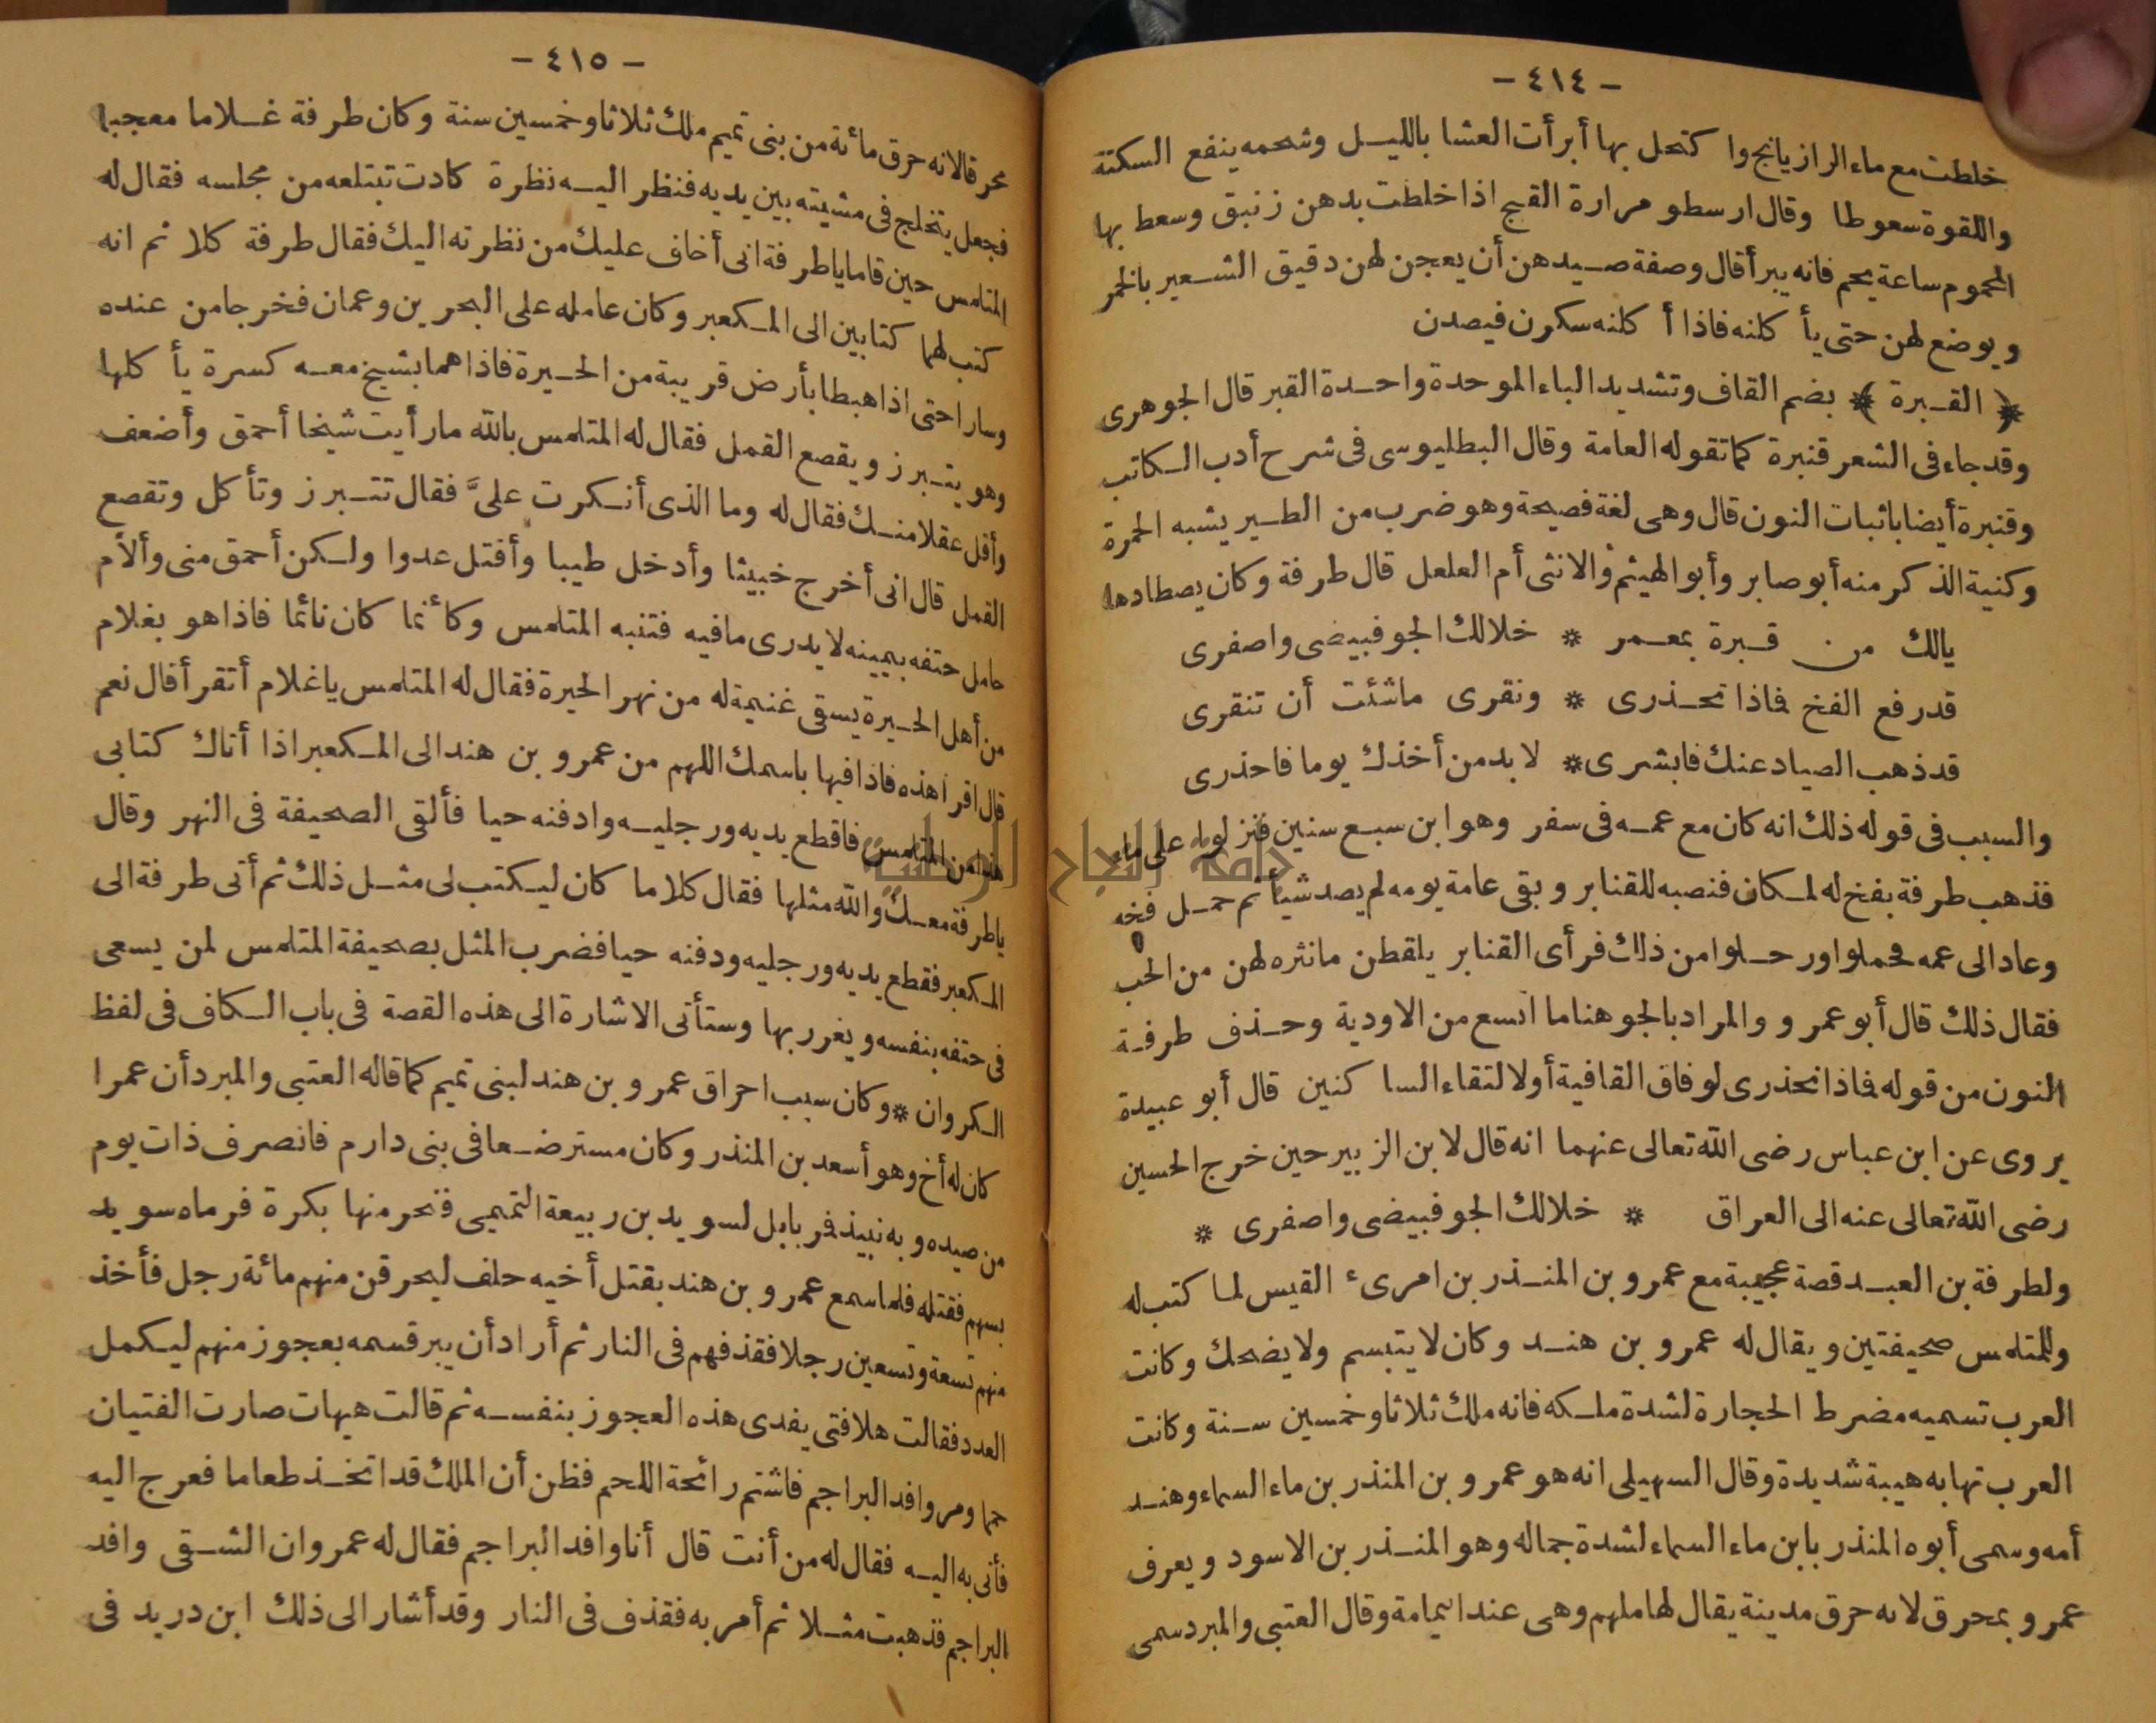 - ٤١٤ -
خلطت مع ماء الرازيانج وا كتحل بها أبرأت العشا بالليل وشحمه ينفع السكتة
واللقوة سعوطا وقال ارسطو مرارة القبج اذا خلطت بدهن زنبق وسعط بها
المحموم ساعة يحم فانه يبرأ قال وصفة صيدهن أن يعجن لهن دقيق الشعير بالخمر
ويوضع لهن حتى يأكلنه فاذا أكلنه سكرن فيصدن
﴿ القبرة ﴾ بضم القاف وتشديد الباء الموحدة واحدة القبر قال الجوهرى
وقد جاء فى الشعر قنبرة كما تقوله العامة وقال البطليوسى فى شرح أدب الكاتب
وقنبرة أيضا باثبات النون قال وهى لغة فصيحة وهو ضرب من الطير يشبه الحمرة
وكنية الذكر منه أبو صابر وأبو الهيثم والانثى أم العلعل قال طرفة وكان يصطادها
يالك من قبرة بمعمر * خلالك الجو فبيضى واصفرى
قد رفع الفخ فاذا تحذرى * ونقرى ماشئت أن تنقرى
قد ذهب الصياد عنك فابشرى * لابد من أخذك يوما فاحذرى
والسبب فى قوله ذلك انه كان مع عمه فى سفر وهو ابن سبع سنين فنزلوا على ماء
فذهب طرفة بفخ له لمكان فنصبه للقنابر وبقى عامة يومه لم يصد شيأ ثم حمل فخه
وعاد الى عمه فحملوا ورحلوا من ذلك فرأى القنابر يلقطن مانثره لهن من الحب
فقال ذلك قال أبو عمرو والمراد بالجو هنا ما اتسع من الاودية وحذف طرفة
النون من قوله فاذا تحذرى لوفاق القافية أولالتقاء الساكنين قال أبو عبيدة
يروى عن ابن عباس رضى الله تعالى عنهما انه قال لابن الزبير حين خرج الحسين
رضى الله تعالى عنه الى العراق * خلالك الجو فبيضى واصفرى *
ولطرفة بن العبد قصة عجيبة مع عمرو بن المنذر بن امرىء القيس لما كتب له
وللمتلمس صحيفتين ويقال له عمرو بن هند وكان لا يتبسم ولا يضحك وكانت
العرب تسميه مضرط الحجارة لشدة ملكه فانه ملك ثلاثا وخمسين سنة وكانت
العرب تهابه هيبة شديدة وقال السهيلى انه هو عمرو بن المنذر بن ماء السماء وهند
أمه وسمى أبوه المنذر بابن ماء السماء لشدة جماله وهو المنذر بن الاسود ويعرف
عمرو بمحرق لانه حرق مدينة يقال لها ملهم وهى عند اليمامة وقال العتبى والمبرد سمى
- ٤١٥ -
محرقا لانه حرق مائة من بنى تميم ملك ثلاثا وخمسين سنة وكان طرفة غلاما معجبا
فجعل يتخلج فى مشيته بين يديه فنظر اليه نظرة كادت تبتلعه من مجلسه فقال له
المتلمس حين قاما ياطرفة انى أخاف عليك من نظرته اليك فقال طرفة كلا ثم انه
كتب لهما كتابين الى المكعبر وكان عامله على البحرين وعمان فخرجا من عنده
وسارا حتى اذا هبطا بأرض قريبة من الحيرة فاذا هما بشيخ معه كسرة يأكلها
وهو يتبرز ويقصع القمل فقال له المتلمس بالله مارأيت شيخا أحمق وأضعف
وأقل عقلا منك فقال له وما الذى أنكرت علىّ فقال تتبرز وتأكل وتقصع
القمل قال انى أخرج خبيثا وأدخل طيبا وأقتل عدوا ولكن أحمق منى وألأم
حامل حتفه بيمينه لا يدرى مافيه فتنبه المتلمس وكأنما كان نائما فاذا هو بغلام
من أهل الحيرة يسقى غنيمة له من نهر الحيرة فقال له المتلمس ياغلام أتقرأ قال نعم
قال اقرأ هذه فاذا فيها باسمك اللهم من عمرو بن هند الى المكعبر اذا أتاك كتابى
هذا من المتلمس فاقطع يديه ورجليه وادفنه حيا فألقى الصحيفة فى النهر وقال
ياطرفة معك والله مثلها فقال كلا ما كان ليكتب لى مثل ذلك ثم أتى طرفة الى
المكعبر فقطع يديه ورجليه ودفنه حيا فضرب المثل بصحيفة المتلمس لمن يسعى
فى حتفه بنفسه ويغرر بها وستأتى الاشارة الى هذه القصة فى باب الكاف فى لفظ
الكروان * وكان سبب احراق عمرو بن هند لبنى تميم كما قاله العتبى والمبرد أن عمرا
كان له أخ وهو أسعد بن المنذر وكان مسترضعا فى بنى دارم فانصرف ذات يوم
من صيده وبه نبيذ فمر بابل لسويد بن ربيعة التميمى فنحر منها بكرة فرماه سويد
بسهم فقتله فلما سمع عمرو بن هند بقتل أخيه حلف ليحرقن منهم مائة رجل فأخذ
منهم تسعة وتسعين رجلا فقذفهم فى النار ثم أراد أن يبر قسمه بعجوز منهم ليكمل
العدد فقالت هلا فتى يفدى هذه العجوز بنفسه ثم قالت هيهات صارت الفتيان
حما ومر وافد البراجم فاشتم رائحة اللحم فظن أن الملك قد اتخذ طعاما فعرج اليه
فأتى به اليه فقال له من أنت قال أنا وافد البراجم فقال له عمرو ان الشقى وافد
البراجم فذهبت مثلا ثم أمر به فقذف فى النار وقد أشار الى ذلك ابن دريد فى
جامعة النجاح الوطنية